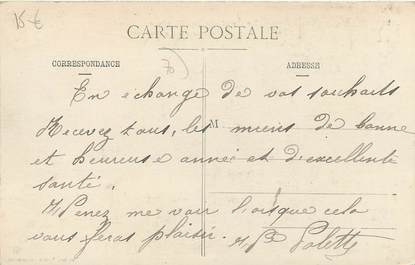 15 €
CARTE POSTALE
70
CORRESPONDANCE
ADRESSE
En échange de vos souhaits
M
Recevez tous, les miens de bonne
et heureuse année et d'excellente
santé.
Venez me voir lorsque cela
vous feras plaisir.